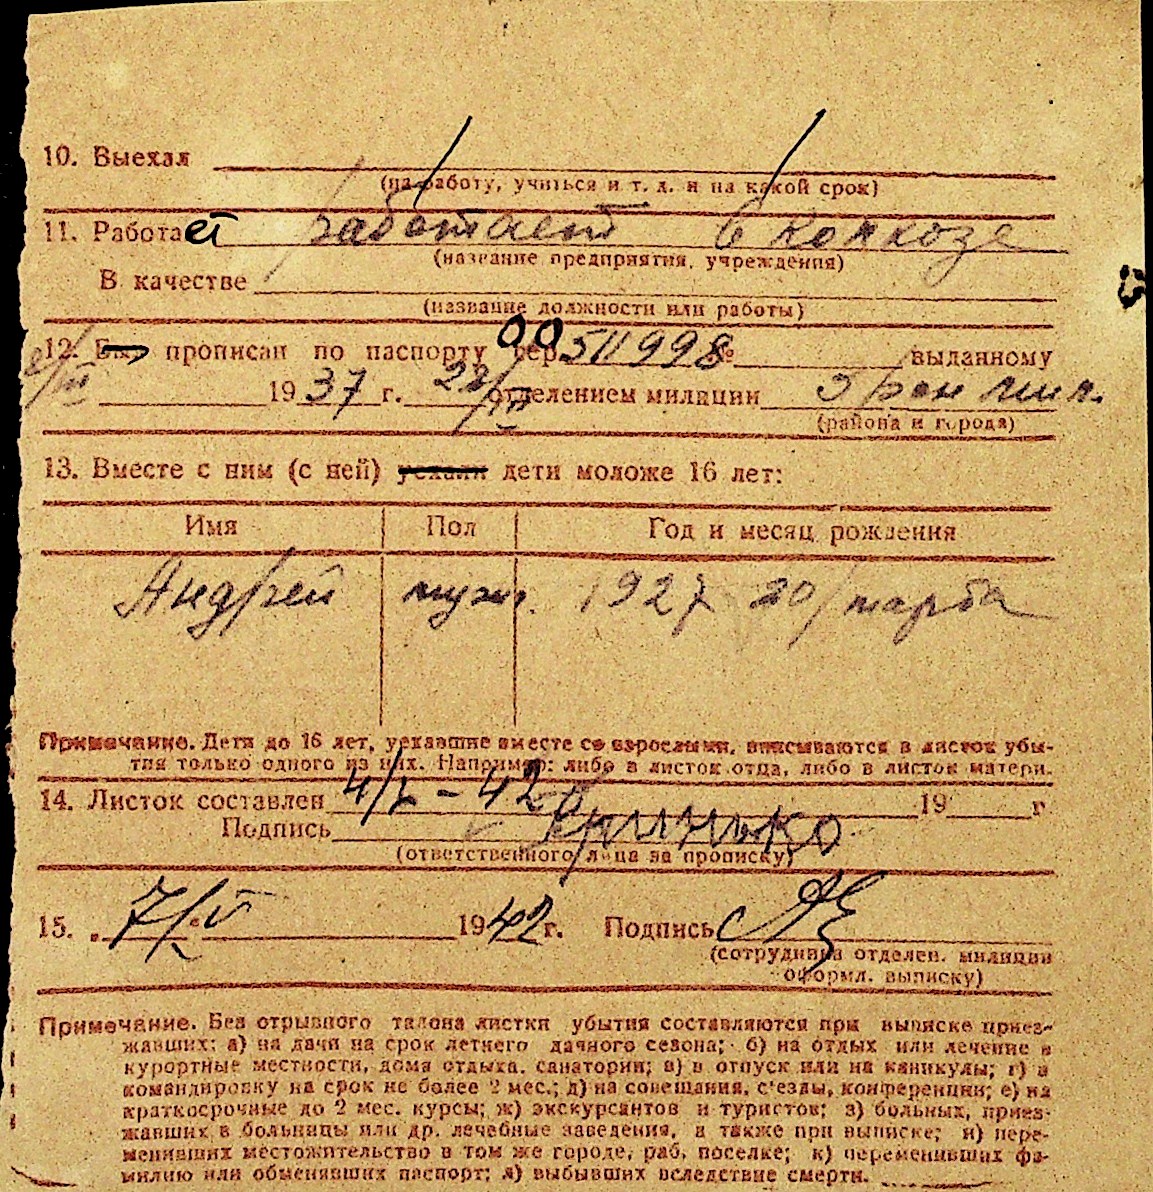 10. Выехал
(на работу, учиться и т. д. и на какой срок)
11. Работает работает в колхозе
(название предприятия, учреждения)
В качестве
(название должности или работы)
12. Был прописан по паспорту сер. 00 511998 № выданному
1937 г. 22/III отделением милиции 5 рай мил.
(района и города)
13. Вместе с ним (с ней) уехали дети моложе 16 лет:
Имя Пол Год и месяц рождения
Андрей муж. 1927 20/марта
Примечание. Дети до 16 лет, уехавшие вместе со взрослыми, вписываются в листок убы-
тия только одного из них. Например: либо в листок отца, либо в листок матери.
14. Листок составлен 4/V – 42 19 г
Подпись
(ответственного лица за прописку)
15. „ 7/V 1942 г. Подпись
(сотрудника отделен. милиции
оформл. выписку)
Примечание. Без отрывного талона листки убытия составляются при выписке приез-
жавших: а) на дачи на срок летнего дачного сезона; б) на отдых или лечение в
курортные местности, дома отдыха, санатории; в) в отпуск или на каникулы; г) в
командировку на срок не более 2 мес.; д) на совещания, съезды, конференции; е) на
краткосрочные до 2 мес. курсы; ж) экскурсантов и туристов; з) больных, приез-
жавших в больницы или др. лечебные заведения, а также при выписке; и) пере-
менивших местожительство в том же городе, раб. поселке; к) переменивших фа-
милию или обменивших паспорт; л) выбывших вследствие смерти.